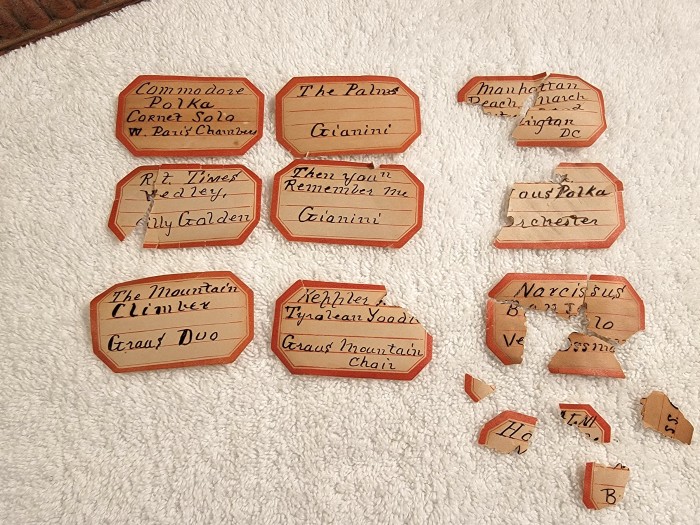 Commodore
Polka
Cornet Solo
W. Paris Chambers
The Palms
Gianini
Manhattan
Beach March
ington
DC
R.t. Times
Medley,
illy Golden
Then you'll
Remember me
Gianini
aus Polka
rchester
The Mountain
Climber
Graus Duo
Keppler
Tyrolean Yood
Graus Mountain
Chair
Narcissus
Banj lo
Ve Ossm
Ho
B